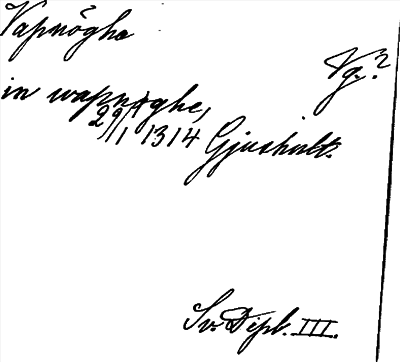 Vapnöghe
Vg.?
in wapnøghe,
29/1 1314 Gjushult.
Sv. Dipl. III.